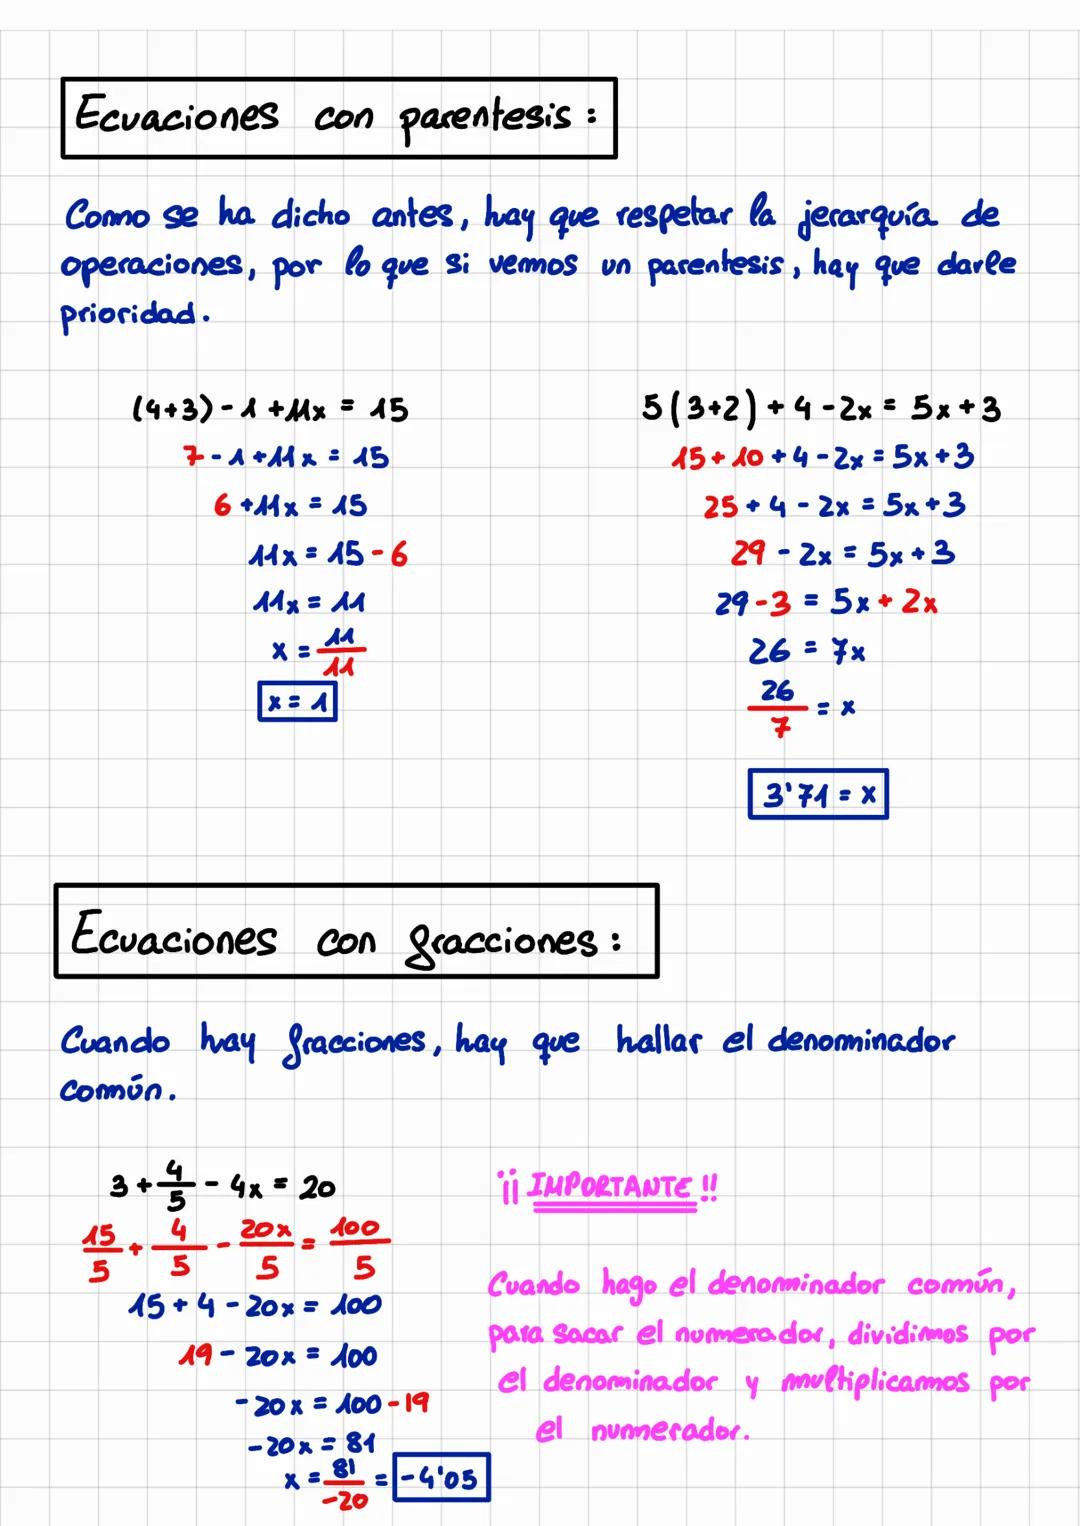 Ecuaciones con parentesis:
Como se ha dicho antes, hay que respetar la jerarquía de
operaciones, por lo que si vemos un parentesis, hay que darle
prioridad.
(4+3) - 1 + 11x = 15
7 - 1 + 11x = 15
6 + 11x = 15
11x = 15 - 6
11x = 11
x = 11/11
x = 1
5(3+2) + 4 - 2x = 5x + 3
15 + 10 + 4 - 2x = 5x + 3
25 + 4 - 2x = 5x + 3
29 - 2x = 5x + 3
29 - 3 = 5x + 2x
26 = 7x
26/7 = x
3'71 = x
Ecuaciones con fracciones:
Cuando hay fracciones, hay que hallar el denominador
común.
3 + 4/5 - 4x = 20
15/5 + 4/5 - 20x/5 = 100/5
15 + 4 - 20x = 100
19 - 20x = 100
-20x = 100 - 19
-20x = 81
x = 81/-20 = -4'05
¡¡ IMPORTANTE !!
Cuando hago el denominador común,
para sacar el numerador, dividimos por
el denominador y multiplicamos por
el numerador.